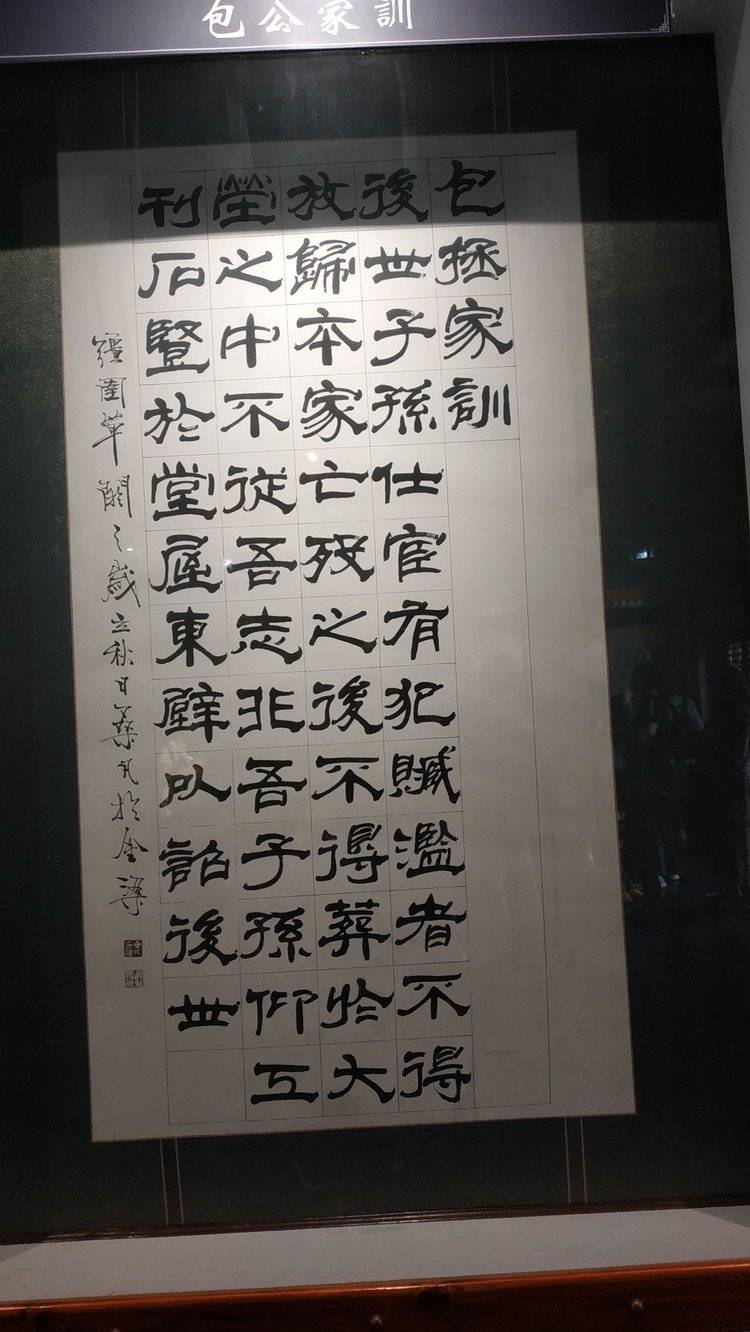 包公家訓
包拯家訓
後世子孫仕宦有犯贓濫者不得
放歸本家亡歿之後不得葬於大
塋之中不從吾志非吾子孫仰工
刊石豎於堂屋東壁以詔後世
彊圉單閼之歲立秋日於金